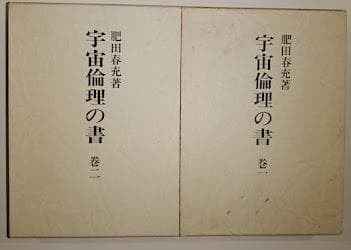 肥田春充著
宇宙倫理の書
巻一
肥田春充著
宇宙倫理の書
巻二